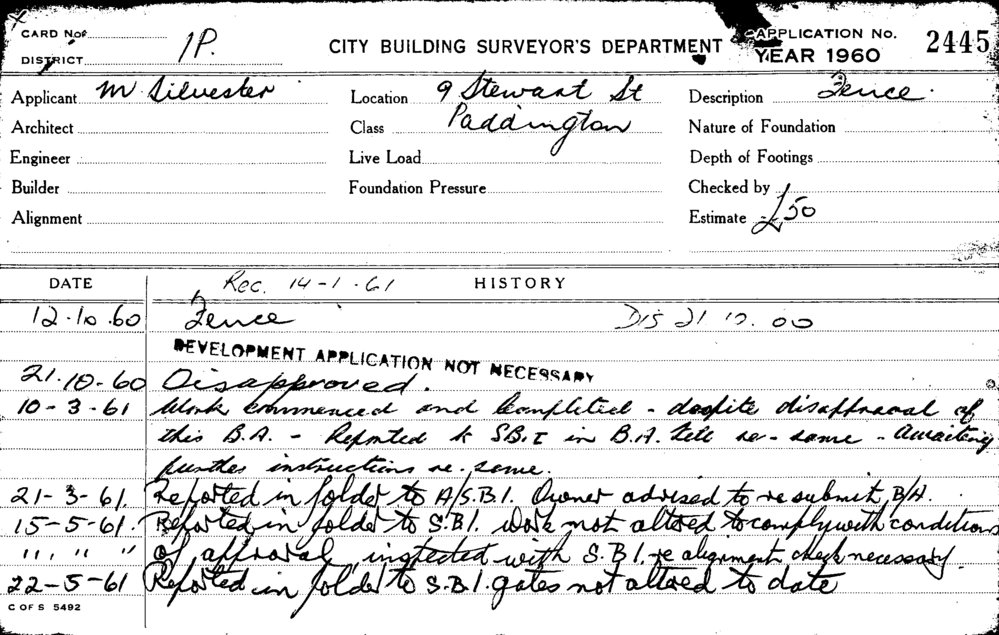 CARD No.
DISTRICT 1P.
CITY BUILDING SURVEYOR'S DEPARTMENT
APPLICATION No. 2445
YEAR 1960
Applicant M Silvester
Location 9 Stewart St
Description Fence.
Architect
Class Paddington
Nature of Foundation
Engineer
Live Load
Depth of Footings
Builder
Foundation Pressure
Checked by
Alignment
Estimate £50
DATE Rec. 14-1-61 HISTORY
12.10.60 Fence Dis 21 10. 60
DEVELOPMENT APPLICATION NOT NECESSARY
21.10-60 Disapproved.
10-3-61 Work commenced and completed - despite disapproval of
this B.A. - Reported to S.B.I in B.A. re-same - Awaiting
further instructions re-same.
21-3-61. Reported in folder to A/S.B.I. Owner advised to resubmit B/A.
15-5-61. Reported in folder to S.B.I. work not altered to comply with conditions
" " " of approval, inspected with S.B.I. re alignment check necessary.
22-5-61 Reported in folder to S.B.I. gates not altered to date
C OF S 5492